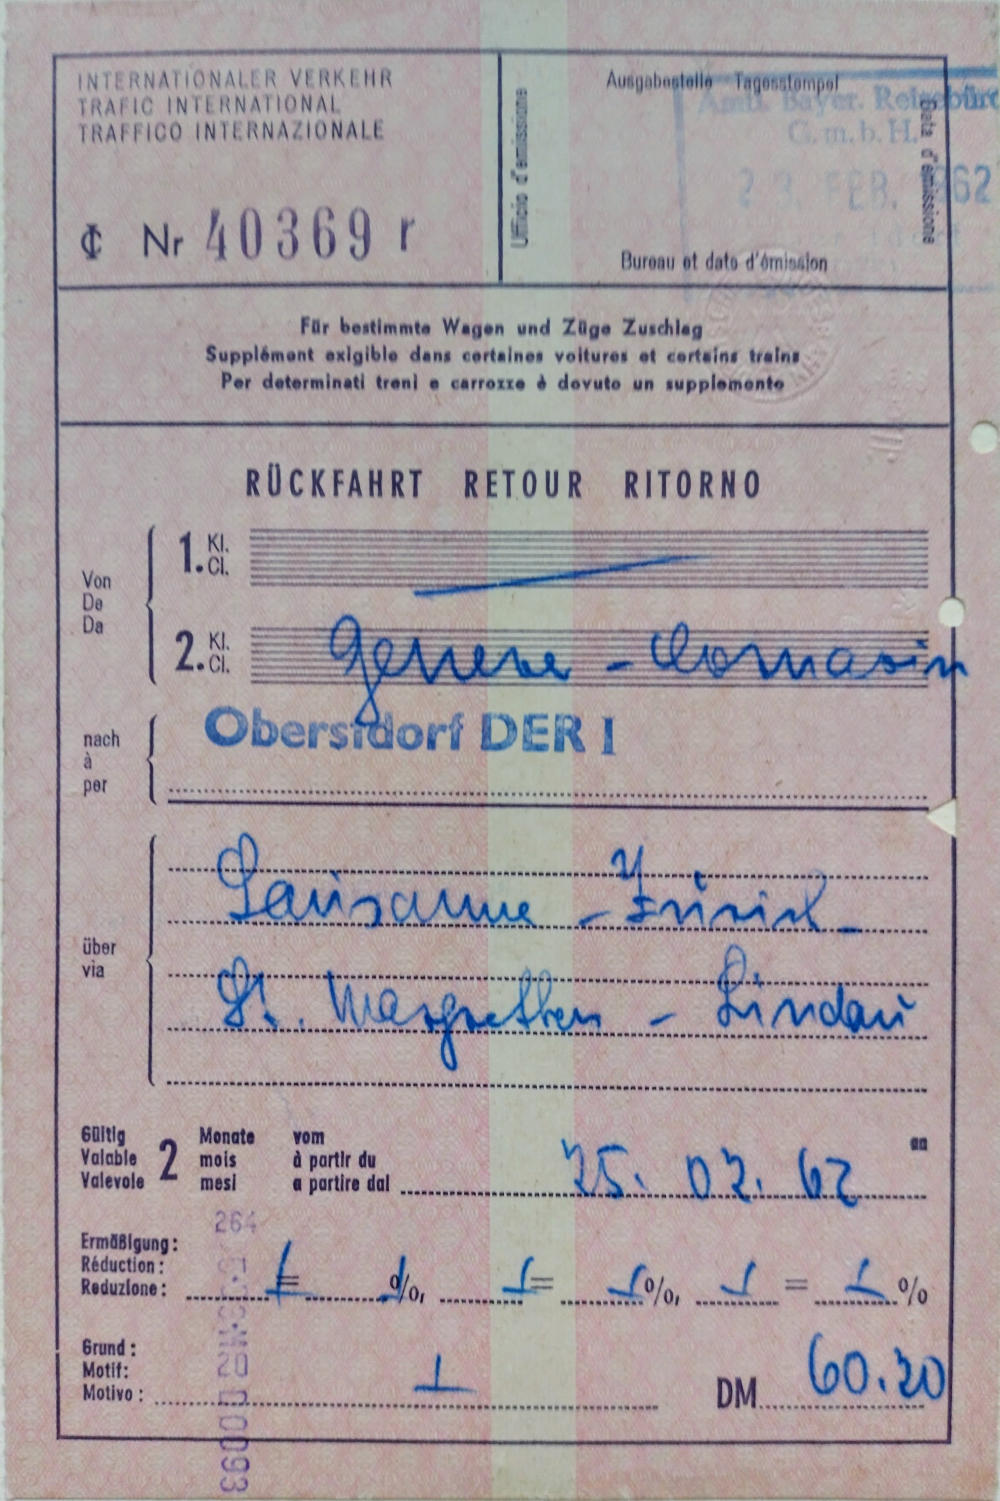 INTERNATIONALER VERKEHR
TRAFIC INTERNATIONAL
TRAFFICO INTERNAZIONALE
₵ Nr 40369 r
Ufficio d'emissione
Ausgabestelle Tagesstempel
Amtl. Bayer. Reisebüro
G.m.b.H.
FEB. 1962
Data d'emissione
Bureau et date d'émission
Für bestimmte Wagen und Züge Zuschlag
Supplément exigible dans certaines voitures et certains trains
Per determinati treni e carrozze è dovuto un supplemento
RÜCKFAHRT RETOUR RITORNO
Von
De
Da
1. Kl.
Cl.
2. Kl.
Cl.
Geneve - Cornavin
nach
à
per
Oberstdorf DER I
über
via
Lausanne - Zürich -
St. Margrethen - Lindau
Gültig
Valable
Valevole
2
Monate
mois
mesi
vom
à partir du
a partire dal
25. 02. 62
an
264
Ermäßigung:
Réduction:
Reduzione:
= %, = %, = %
Grund:
Motif:
Motivo:
DM 60.20
00093